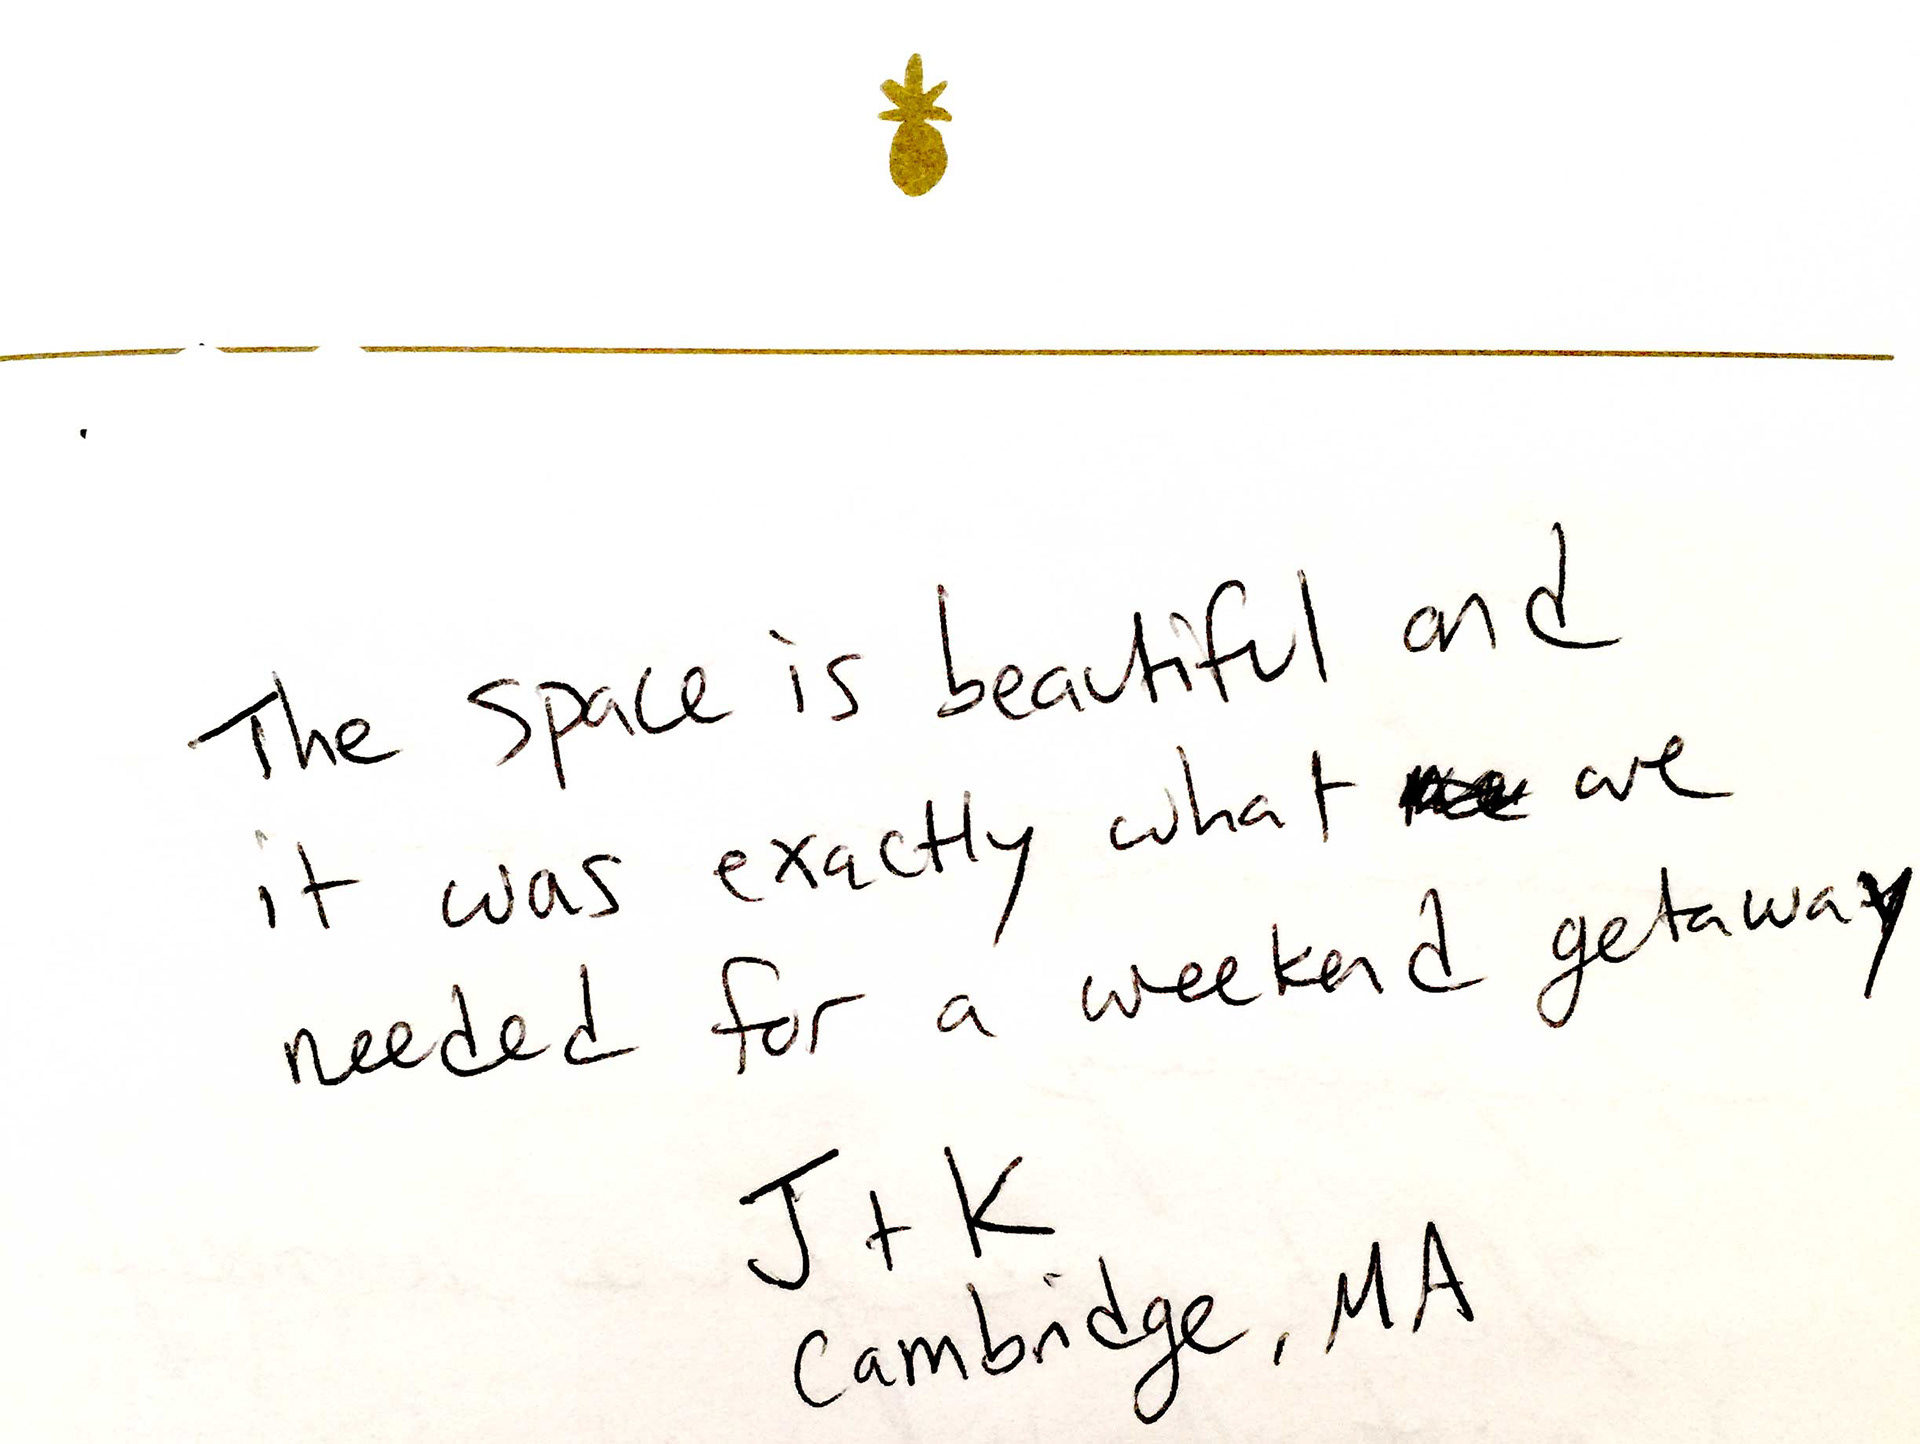 The space is beautiful and
it was exactly what we
needed for a weekend getaway
J + K
Cambridge, MA